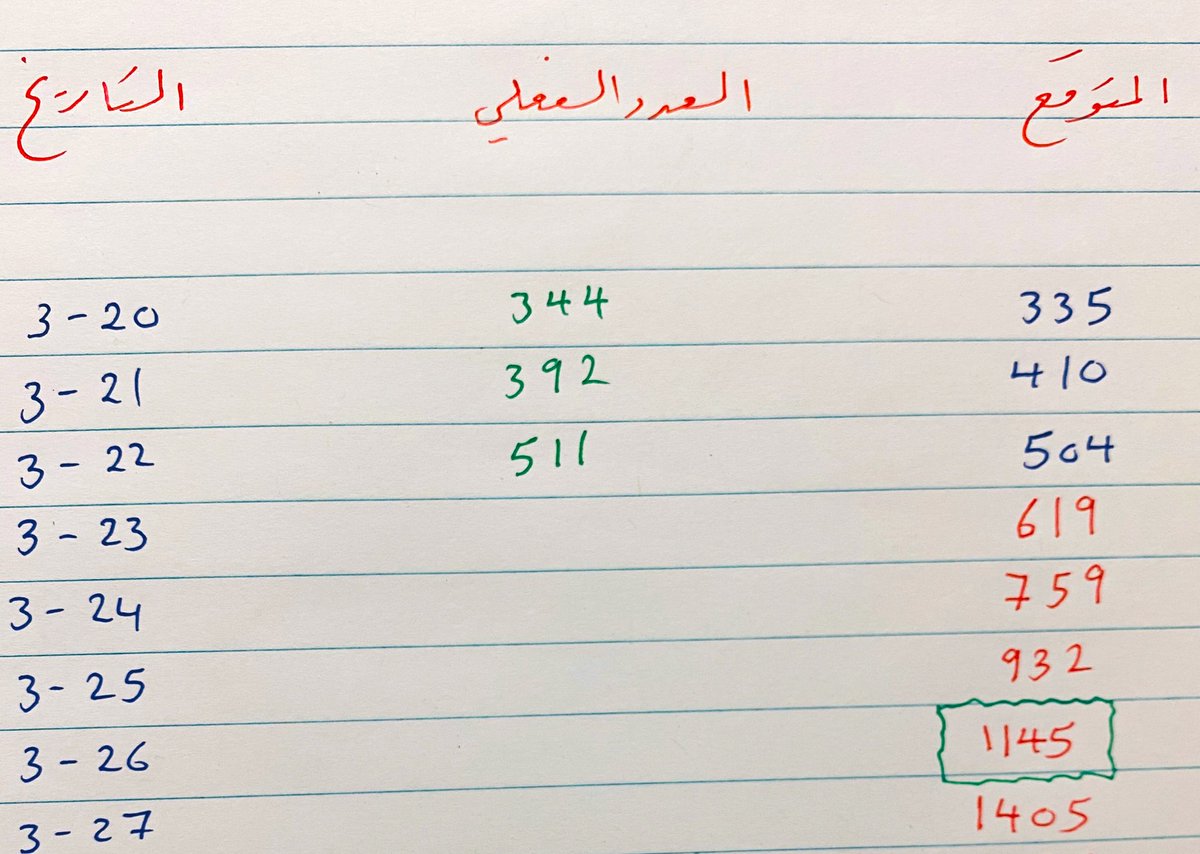 التاريخ العدد الفعلي المتوقع
3-20 344 335
3-21 392 410
3-22 511 504
3-23 619
3-24 759
3-25 932
3-26 1145
3-27 1405